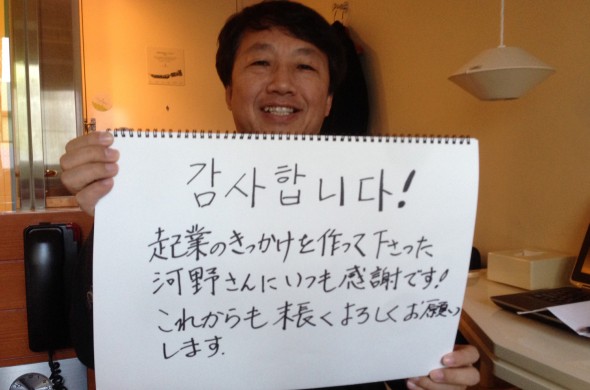 감사합니다!
起業のきっかけを作って下さった
河野さんにいつも感謝です!
これからも末長くよろしくお願い
します.